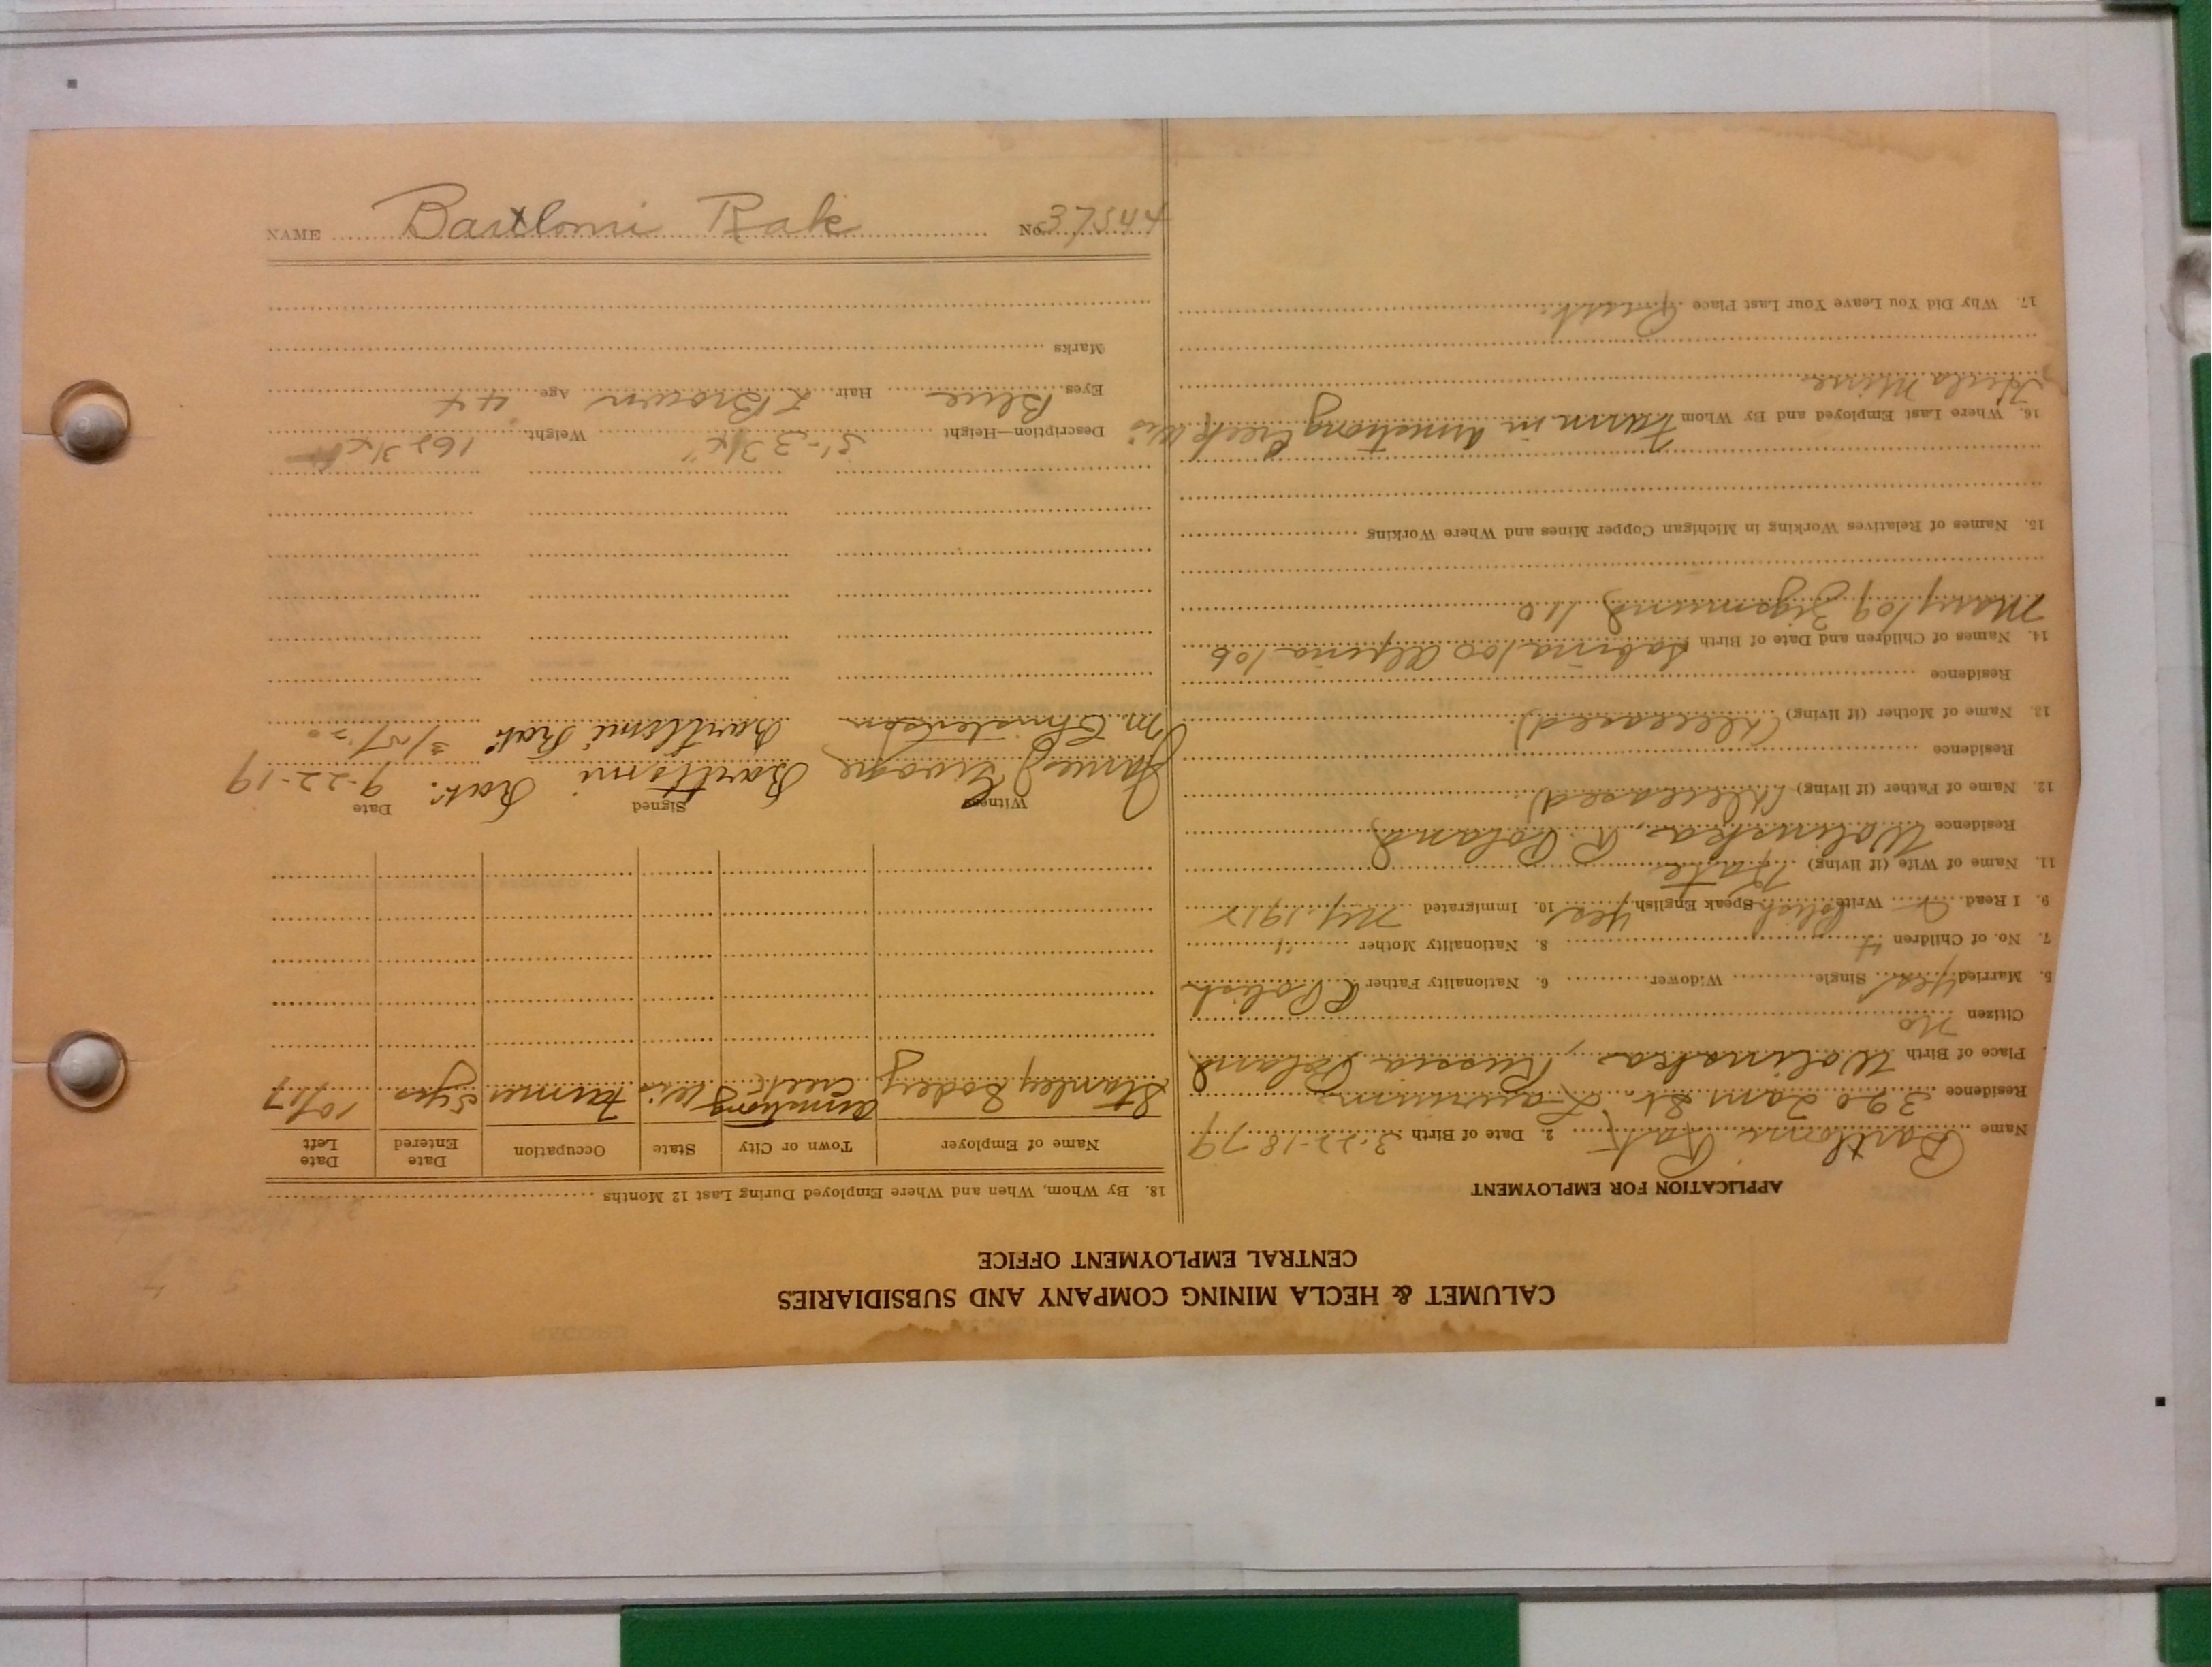 CALUMET & HECLA MINING COMPANY AND SUBSIDIARIES
CENTRAL EMPLOYMENT OFFICE
APPLICATION FOR EMPLOYMENT
Name Bartlomi Rak 2. Date of Birth 3-22-1879
Residence 390 Tam St. Laurium
Place of Birth Wolinska, Russia Poland
Citizen No
5. Married yes Single Widower 6. Nationality Father R Polish
7. No. of Children 4 8. Nationality Mother "
9. I Read Write Polish Speak English yes 10. Immigrated 1912
11. Name of Wife (if living) Kate
Residence Wolinska, R Poland
12. Name of Father (if living) (Deceased)
Residence
13. Name of Mother (if living) (Deceased)
Residence
14. Names of Children and Date of Birth Sabina 100 106
Mary 109 Zigmund 110
15. Names of Relatives Working in Michigan Copper Mines and Where Working
16. Where Last Employed and By Whom Farm in Armstrong Creek Wis
Hecla Mine
17. Why Did You Leave Your Last Place
18. By Whom, When and Where Employed During Last 12 Months
Name of Employer Town or City State Occupation Date Entered Date Left
Stanley Armstrong Creek Wis Farmer 5 yrs 10/17
Witness Signed Date
James Bartlomi Rak. 9-22-19
M. Christenson Bartlomi Rak
Description—Height 5'-3 3/4" Weight 162 3/4
Eyes Blue Hair L Brown Age 44
Marks
NAME Bartlomi Rak NO 37544